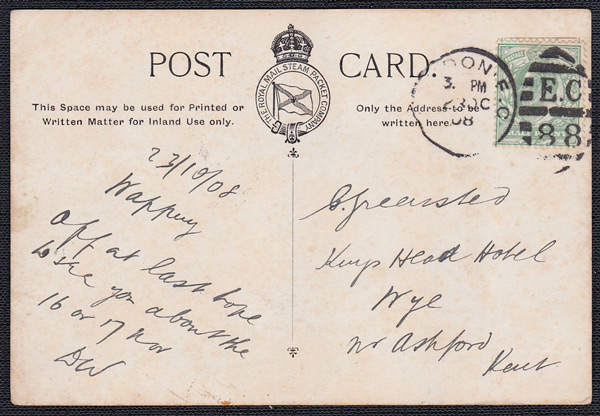 POST CARD.
THE ROYAL MAIL STEAM PACKET COMPANY
This Space may be used for Printed or
Written Matter for Inland Use only.
Only the Address to be
written here.
3. PM
08
E.C
88
23/10/08
Wapping
Off at last hope
to see you about the
16 or 17 Nov
DW
Kings Head Hotel
Wye
nr Ashford
Kent